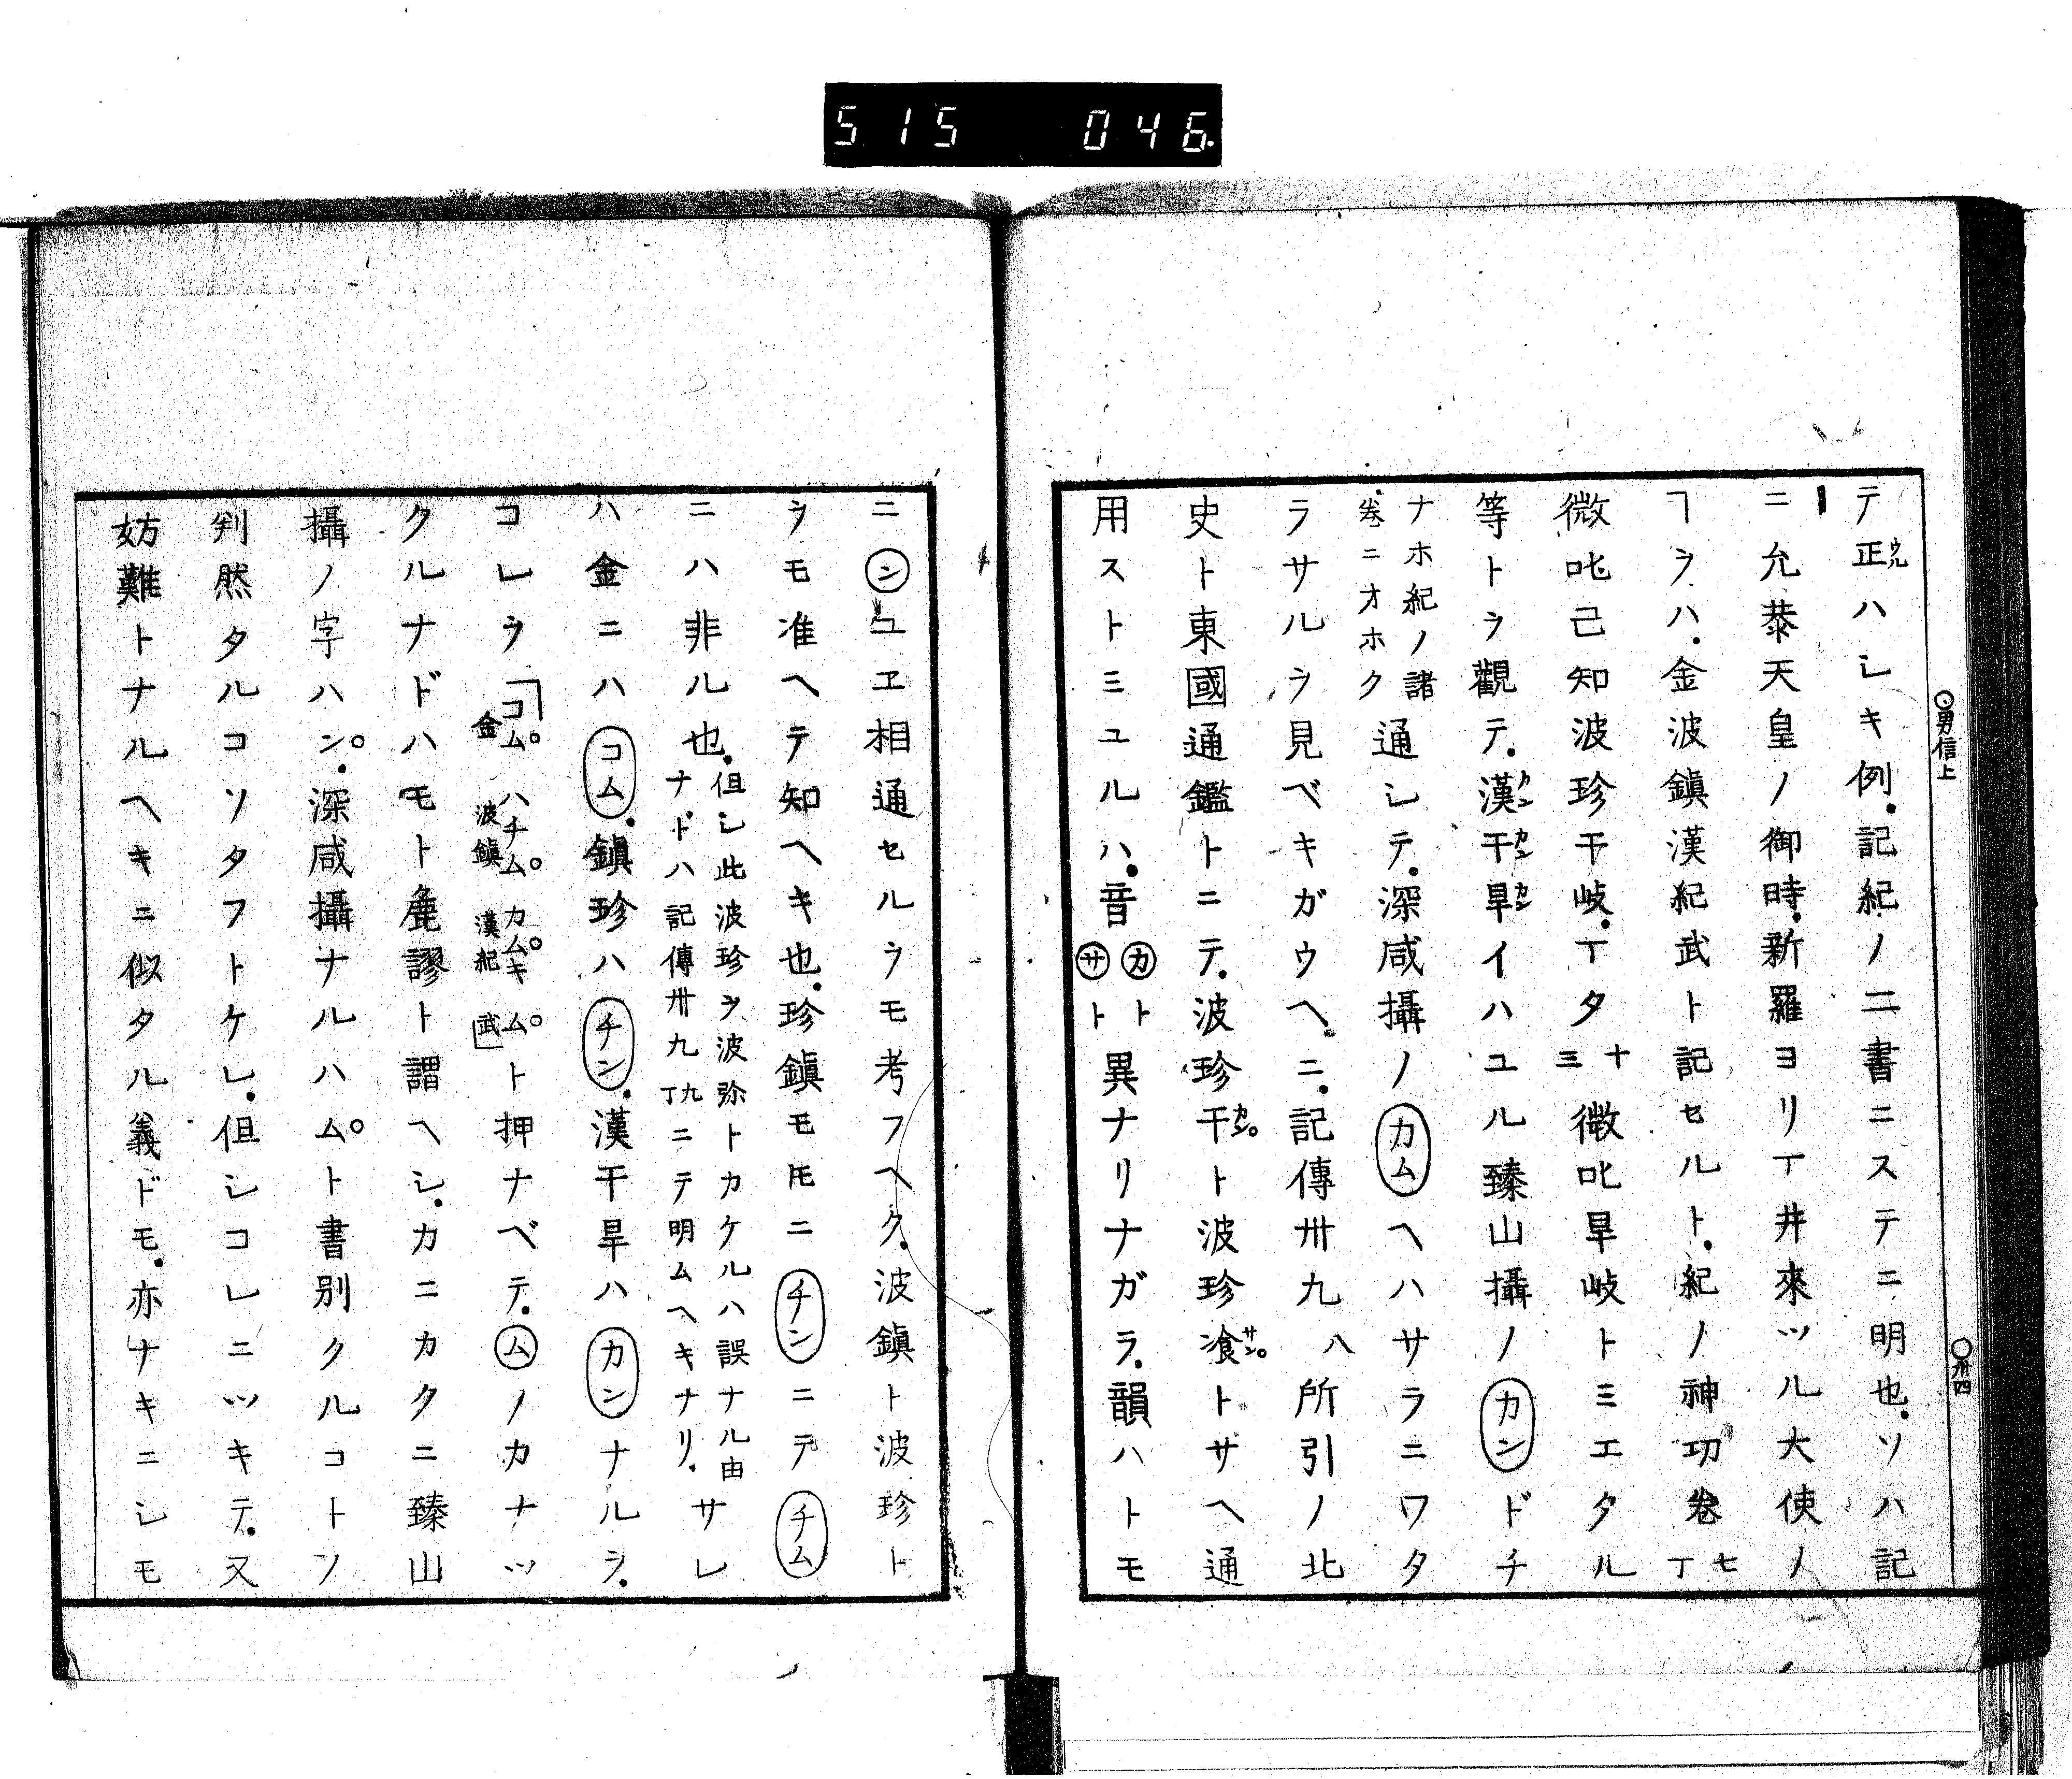 515 046.
男信上
卅四
テ正ハシキ例.記紀ノ二書ニステニ明也.ソハ記
ニ允恭天皇ノ御時.新羅ヨリ丁井來ツル大使ノ
ヿヲハ.金波鎭漢紀武ト記セルト.紀ノ神功卷七丁
微叱己知波珍干岐.丁タ十三微叱旱岐トミエタル
等トヲ觀テ.漢カン干カン旱カンイハユル臻山攝ノカンドチ
ナホ紀ノ諸卷ニオホク通シテ.深咸攝ノカムヘハサラニワタ
ラサルヲ見ベキガウヘ.ニ.記傳卅九八所引ノ北
史ト東國通鑑トニテ.波珍干カン。ト波珍飡サン。トサヘ通
用ストミユルハ.音カトサト異ナリナガラ.韻ハトモ
ニンユヱ相通セルヲモ考フヘク.波鎭ト波珍ト
ヲモ准ヘテ知ヘキ也.珍鎭モ𪜈ニチンニテチム
ニハ非ル也.但シ此波珍ヲ波弥トカケルハ誤ナル由ナドハ記傳卅九九丁ニテ明ムヘキナリ.サレ
ハ金ニハコム.鎭珍ハチン.漢干旱ハカンナルヲ.
コレヲ「コム。ハチム。カム。キム。金波鎭漢紀武」ト押ナベテ.ムノカナツ
クルナドハモト麁謬ト謂ヘシ.カニカクニ臻山
攝ノ字ハン。.深咸攝ナルハム。ト書別クルコトソ
判然タルコソタフトケレ.但シコレニツキテ.又
妨難トナルヘキニ似タル義ドモ.亦ナキニシモ